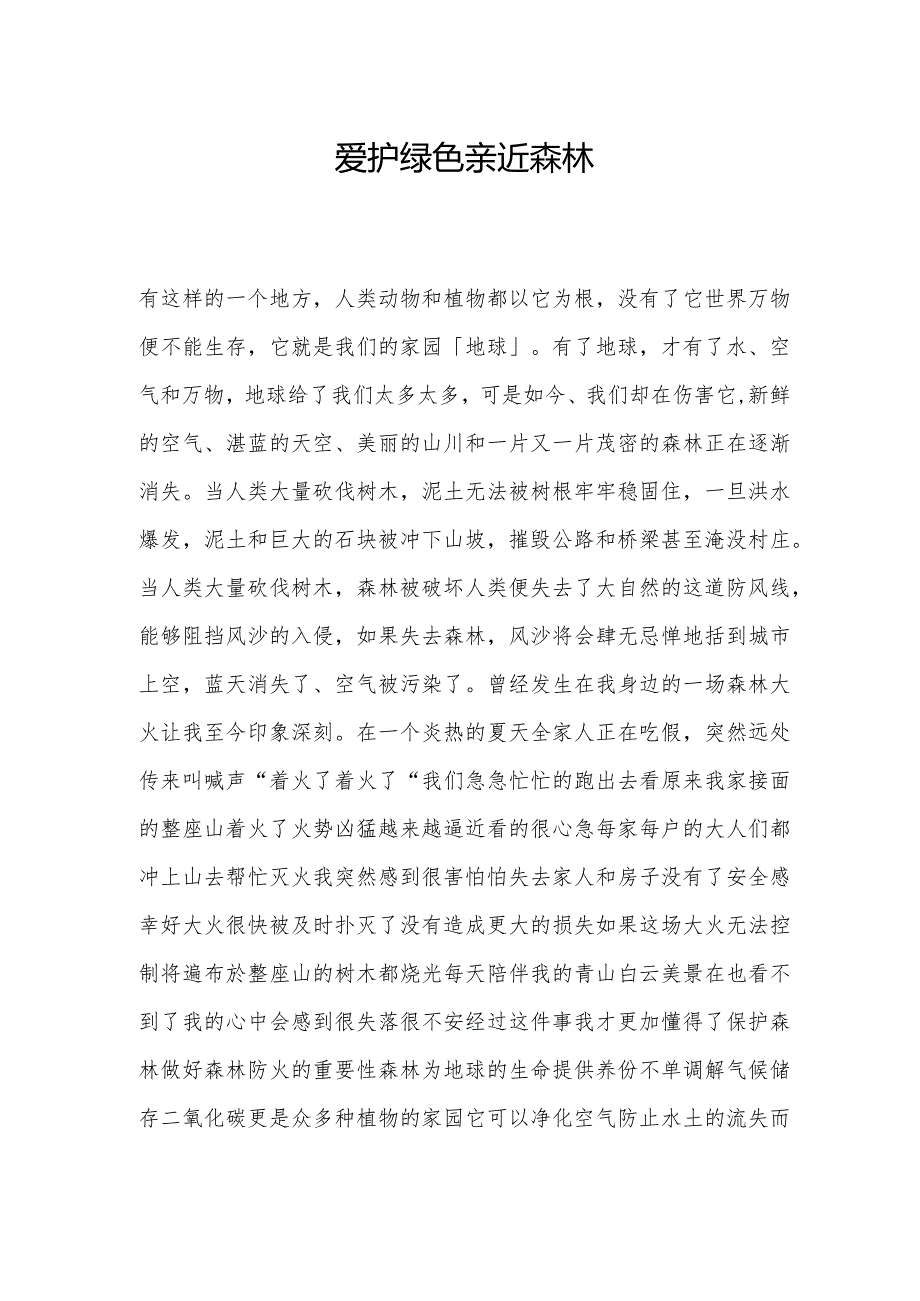 爱护绿色亲近森林
有这样的一个地方，人类动物和植物都以它为根，没有了它世界万物
便不能生存，它就是我们的家园「地球」。有了地球，才有了水、空
气和万物，地球给了我们太多太多，可是如今、我们却在伤害它,新鲜
的空气、湛蓝的天空、美丽的山川和一片又一片茂密的森林正在逐渐
消失。当人类大量砍伐树木，泥土无法被树根牢牢稳固住，一旦洪水
爆发，泥土和巨大的石块被冲下山坡，摧毁公路和桥梁甚至淹没村庄。
当人类大量砍伐树木，森林被破坏人类便失去了大自然的这道防风线，
能够阻挡风沙的入侵，如果失去森林，风沙将会肆无忌惮地括到城市
上空，蓝天消失了、空气被污染了。曾经发生在我身边的一场森林大
火让我至今印象深刻。在一个炎热的夏天全家人正在吃假，突然远处
传来叫喊声“着火了着火了“我们急急忙忙的跑出去看原来我家接面
的整座山着火了火势凶猛越来越逼近看的很心急每家每户的大人们都
冲上山去帮忙灭火我突然感到很害怕怕失去家人和房子没有了安全感
幸好大火很快被及时扑灭了没有造成更大的损失如果这场大火无法控
制将遍布於整座山的树木都烧光每天陪伴我的青山白云美景在也看不
到了我的心中会感到很失落很不安经过这件事我才更加懂得了保护森
林做好森林防火的重要性森林为地球的生命提供养份不单调解气候储
存二氧化碳更是众多种植物的家园它可以净化空气防止水土的流失而